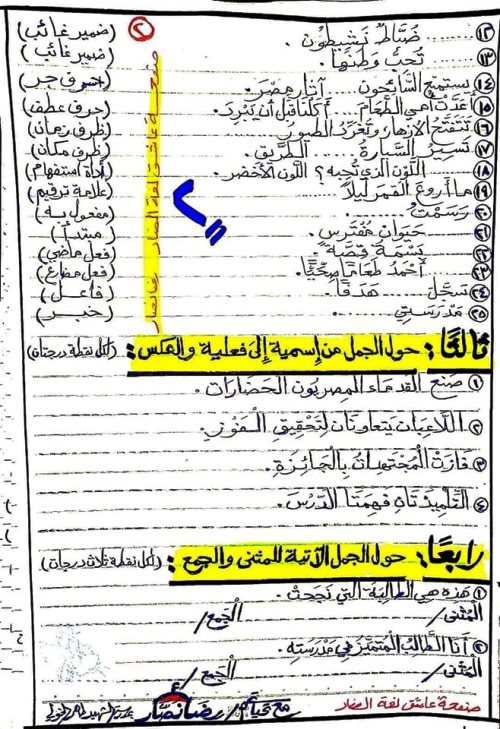 ١٢ ......... ضُبَّاطٌ نَشِيطُونَ. (ضمير غائب) ٢
١٣ ......... تُحِبُّ وَطَنَهَا. (ضمير غائب)
١٤ يستمتع السَّائِحُونَ ...... آثَارِ مِصْرَ. (حرف جر)
١٥ أَعَدَّتْ أُمِّي الطَّعَامَ ...... أَكَلْنَا قَبْلَ أَنْ يَبْرُدَ. (حرف عطف)
١٦ تَتَفَتَّحُ الْأَزْهَارُ وَتُغَرِّدُ الطُّيُورُ ......... (ظرف زمان)
١٧ تَسِيرُ السَّيَّارَةُ ......... الطَّرِيقِ. (ظرف مكان)
١٨ ......... اللَّوْنُ الَّذِي تُحِبُّهُ؟ اللَّوْنُ الْأَخْضَرُ. (أداة استفهام)
١٩ مَا أَرْوَعَ الْقَمَرَ لَيْلًا (علامة ترقيم)
٢٠ رَسَمْتُ ......... (مفعول به)
٢١ ......... حَيَوَانٌ مُفْتَرِسٌ. (مبتدأ)
٢٢ ......... بَسْمَةُ قِصَّةً. (فعل ماضي)
٢٣ ......... أَحْمَدُ طَعَامًا صِحِّيًّا. (فعل مضارع)
٢٤ سَجَّلَ ......... هَدَفًا. (فاعل)
٢٥ مَدْرَسَتِي ......... (خبر)
صفحة عاشق لغة الضاد رضا نصار
ثالثًا: حول الجمل من إسمية إلى فعلية والعكس: (لكل نقطة درجتان)
١ صَنَعَ الْقُدَمَاءُ الْمِصْرِيُّونَ الْحَضَارَاتِ.
٢ اللَّاعِبَانِ يَتَعَاوَنَانِ لِتَحْقِيقِ الْفَوْزِ.
٣ فَازَتْ الْمُجْتَهِدَاتُ بِالْجَائِزَةِ.
٤ التِّلْمِيذَتَانِ فَهِمَتَا الدَّرْسَ.
رابعًا: حول الجمل الآتية للمثنى والجمع: (لكل نقطة ثلاث درجات)
١ هَذِهِ هِيَ الطَّالِبَةُ الَّتِي نَجَحَتْ.
الْمُثَنَّى/ الْجَمْعُ/
٢ أَنَا الطَّالِبُ الْمُتَمَيِّزُ فِي مَدْرَسَتِهِ.
الْمُثَنَّى/ الْجَمْعُ/
صفحة عاشق لغة الضاد مع تحياتي أ/ رضا نصار